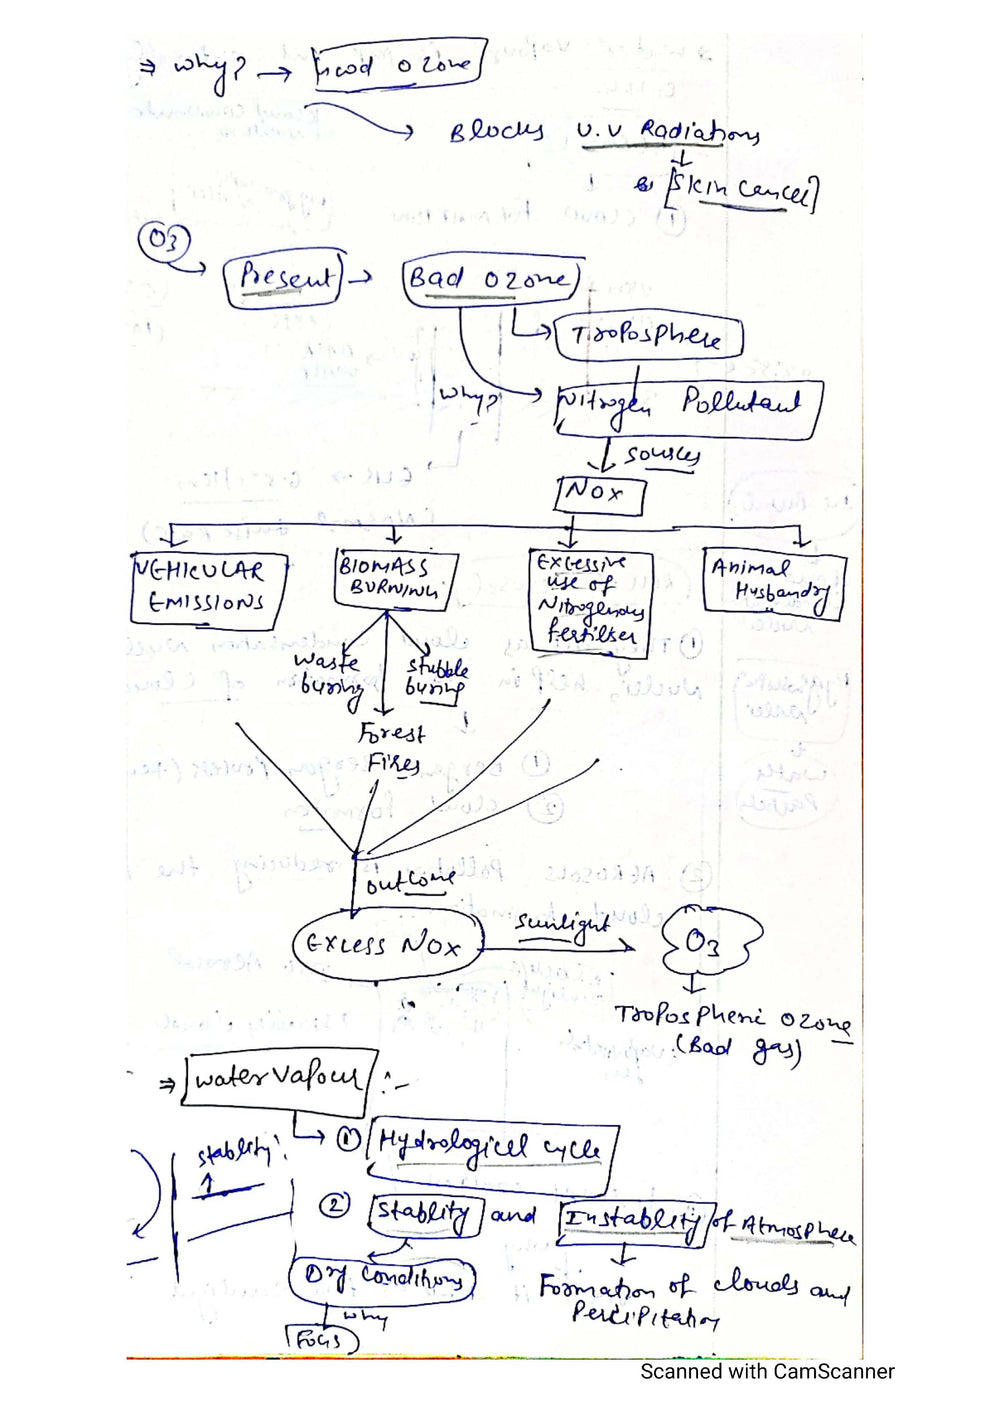 ⇒ why? → Good Ozone
→ Blocks U.V Radiations
↓
[Skin cancer]
O3
→ Present → Bad Ozone
→ Troposphere
why?
Nitrogen Pollutant
↓ sources
NOX
VEHICULAR
EMISSIONS
BIOMASS
BURNING
Excessive
use of
Nitrogenous
fertilser
Animal
Husbandry
waste
buring
stubble
buring
Forest
Fires
outcome
Excess NOX
sunlight
O3
↓
Tropospheric Ozone
(Bad gas)
⇒ water vapour :-
→ ① Hydrological cycle
stablity:
↑
② Stablity and Instablity of Atmosphere
Dry Conditions
↓ why
FOGS
↓
Formation of clouds and
Percipitation
Scanned with CamScanner